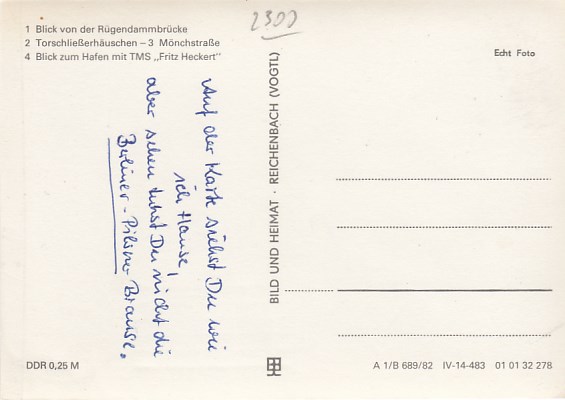 2300
1 Blick von der Rügendammbrücke
2 Torschließerhäuschen – 3 Mönchstraße
4 Blick zum Hafen mit TMS „Fritz Heckert"
Echt Foto
Auf der Karte siehst Du wie
ich Hause,
aber sehen tuhst Du nicht die
Berliner-Pilsner Brause.
BILD UND HEIMAT · REICHENBACH (VOGTL)
DDR 0,25 M
A 1/B 689/82 IV-14-483 01 01 32 278